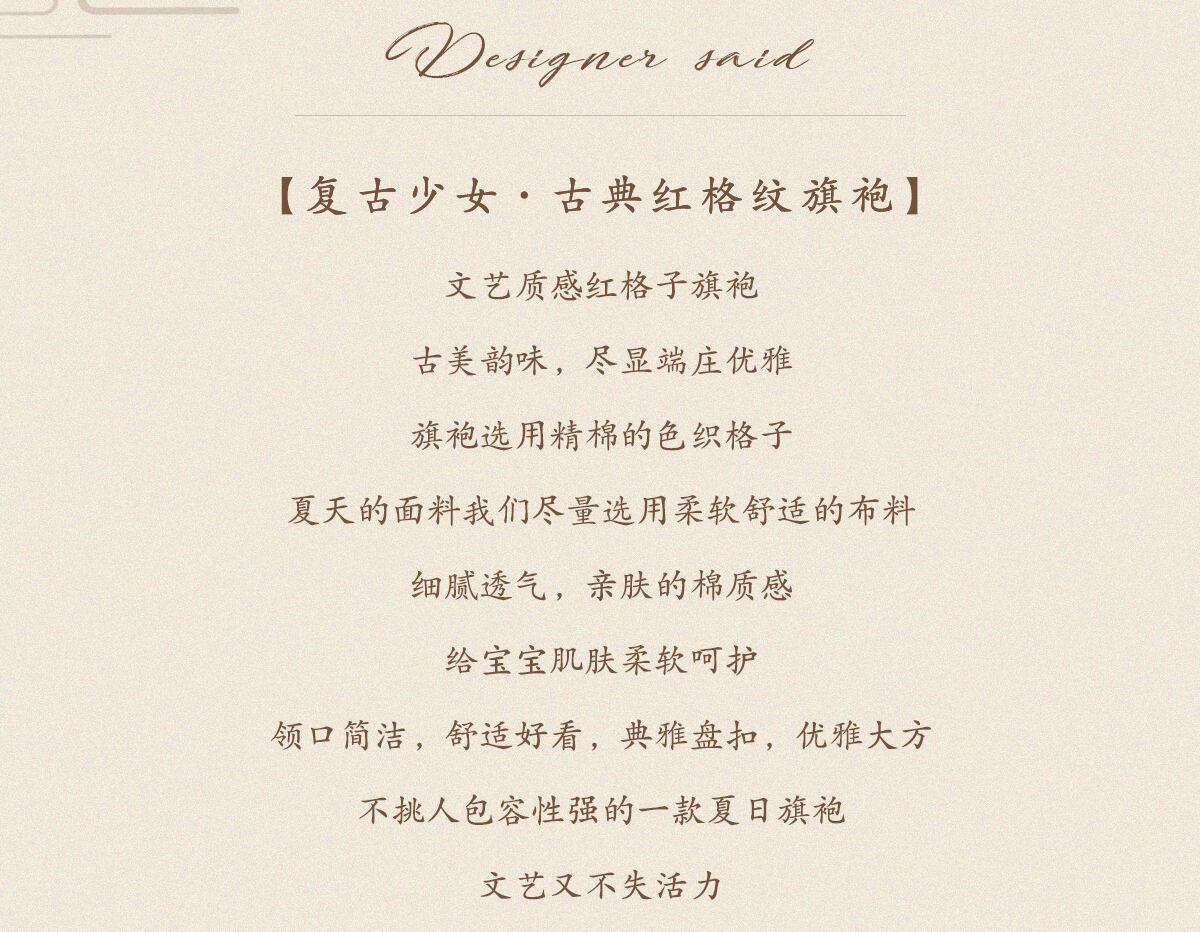 Designer said
【复古少女·古典红格纹旗袍】
文艺质感红格子旗袍
古美韵味，尽显端庄优雅
旗袍选用精棉的色织格子
夏天的面料我们尽量选用柔软舒适的布料
细腻透气，亲肤的棉质感
给宝宝肌肤柔软呵护
领口简洁，舒适好看，典雅盘扣，优雅大方
不挑人包容性强的一款夏日旗袍
文艺又不失活力